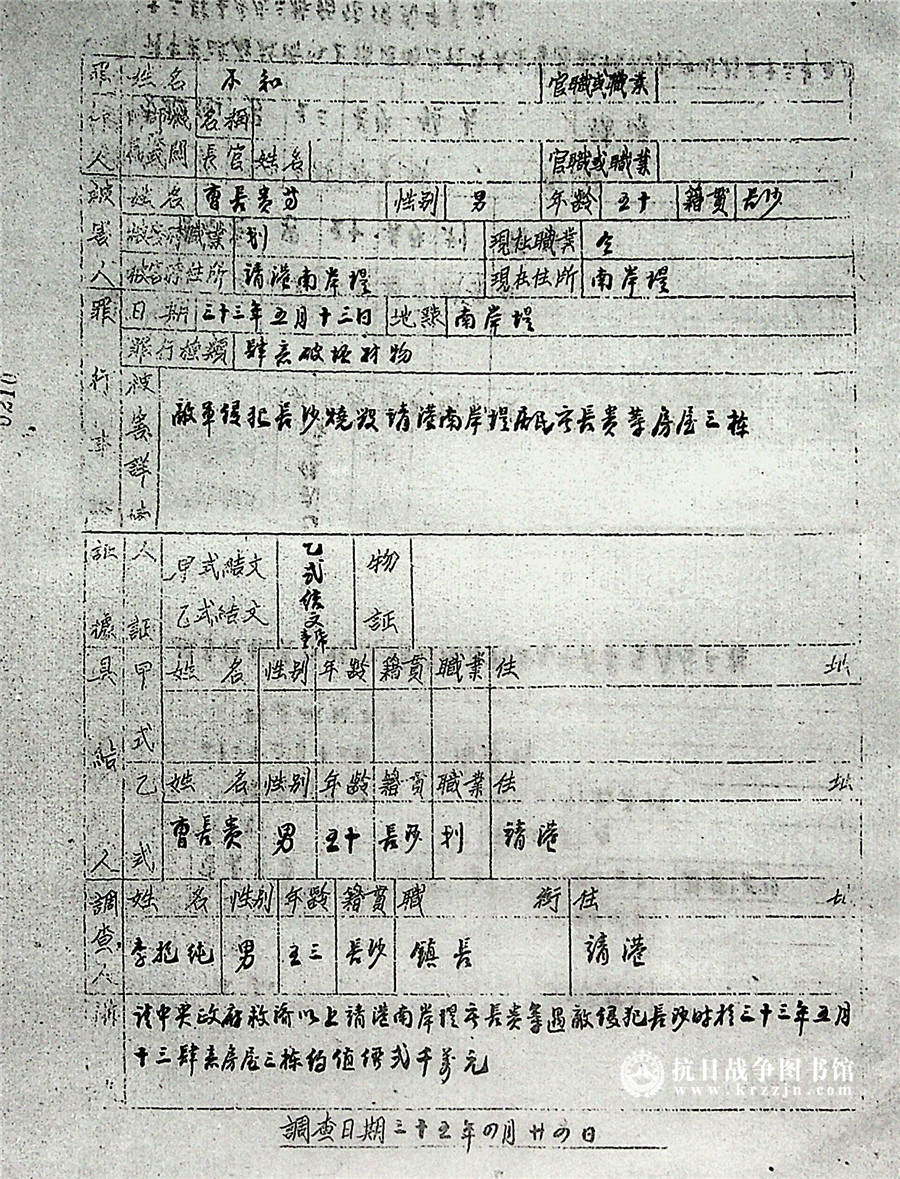 罪行人 姓名 不知 官職或職業
名稱
長官姓名 官職或職業
被害人 姓名 曹長貴 性别 男 年齡 五十 籍貫 長沙
職業 划 現在職業 仝
住所 靖港南岸堤 現在住所 南岸堤
罪行事 日期 三十三年五月十三日 地點 南岸堤
罪行種類 肆意破坏財物
被害詳情
敵軍侵犯長沙燒毀靖港南岸堤居民 長貴等房屋三栋
証據 人証 甲式結文 乙式結文 乙式结文 物証
具結人 甲式 姓名 性别 年齡 籍貫 職業 住址
乙式 姓名 性别 年齡 籍貫 職業 住址
曹長貴 男 五十 長沙 划 靖港
調查人 姓名 性别 年齡 籍貫 職銜 住址
李 純 男 五三 長沙 鎮長 靖港
請中央政府救濟以上靖港南岸堤 長貴等遇敵侵犯長沙時於三十三年五月
十三肆 房屋三栋约值 弍千萬元
調查日期三十五年四月廿四日
抗日战争图书馆
www.krzzjn.com
0210